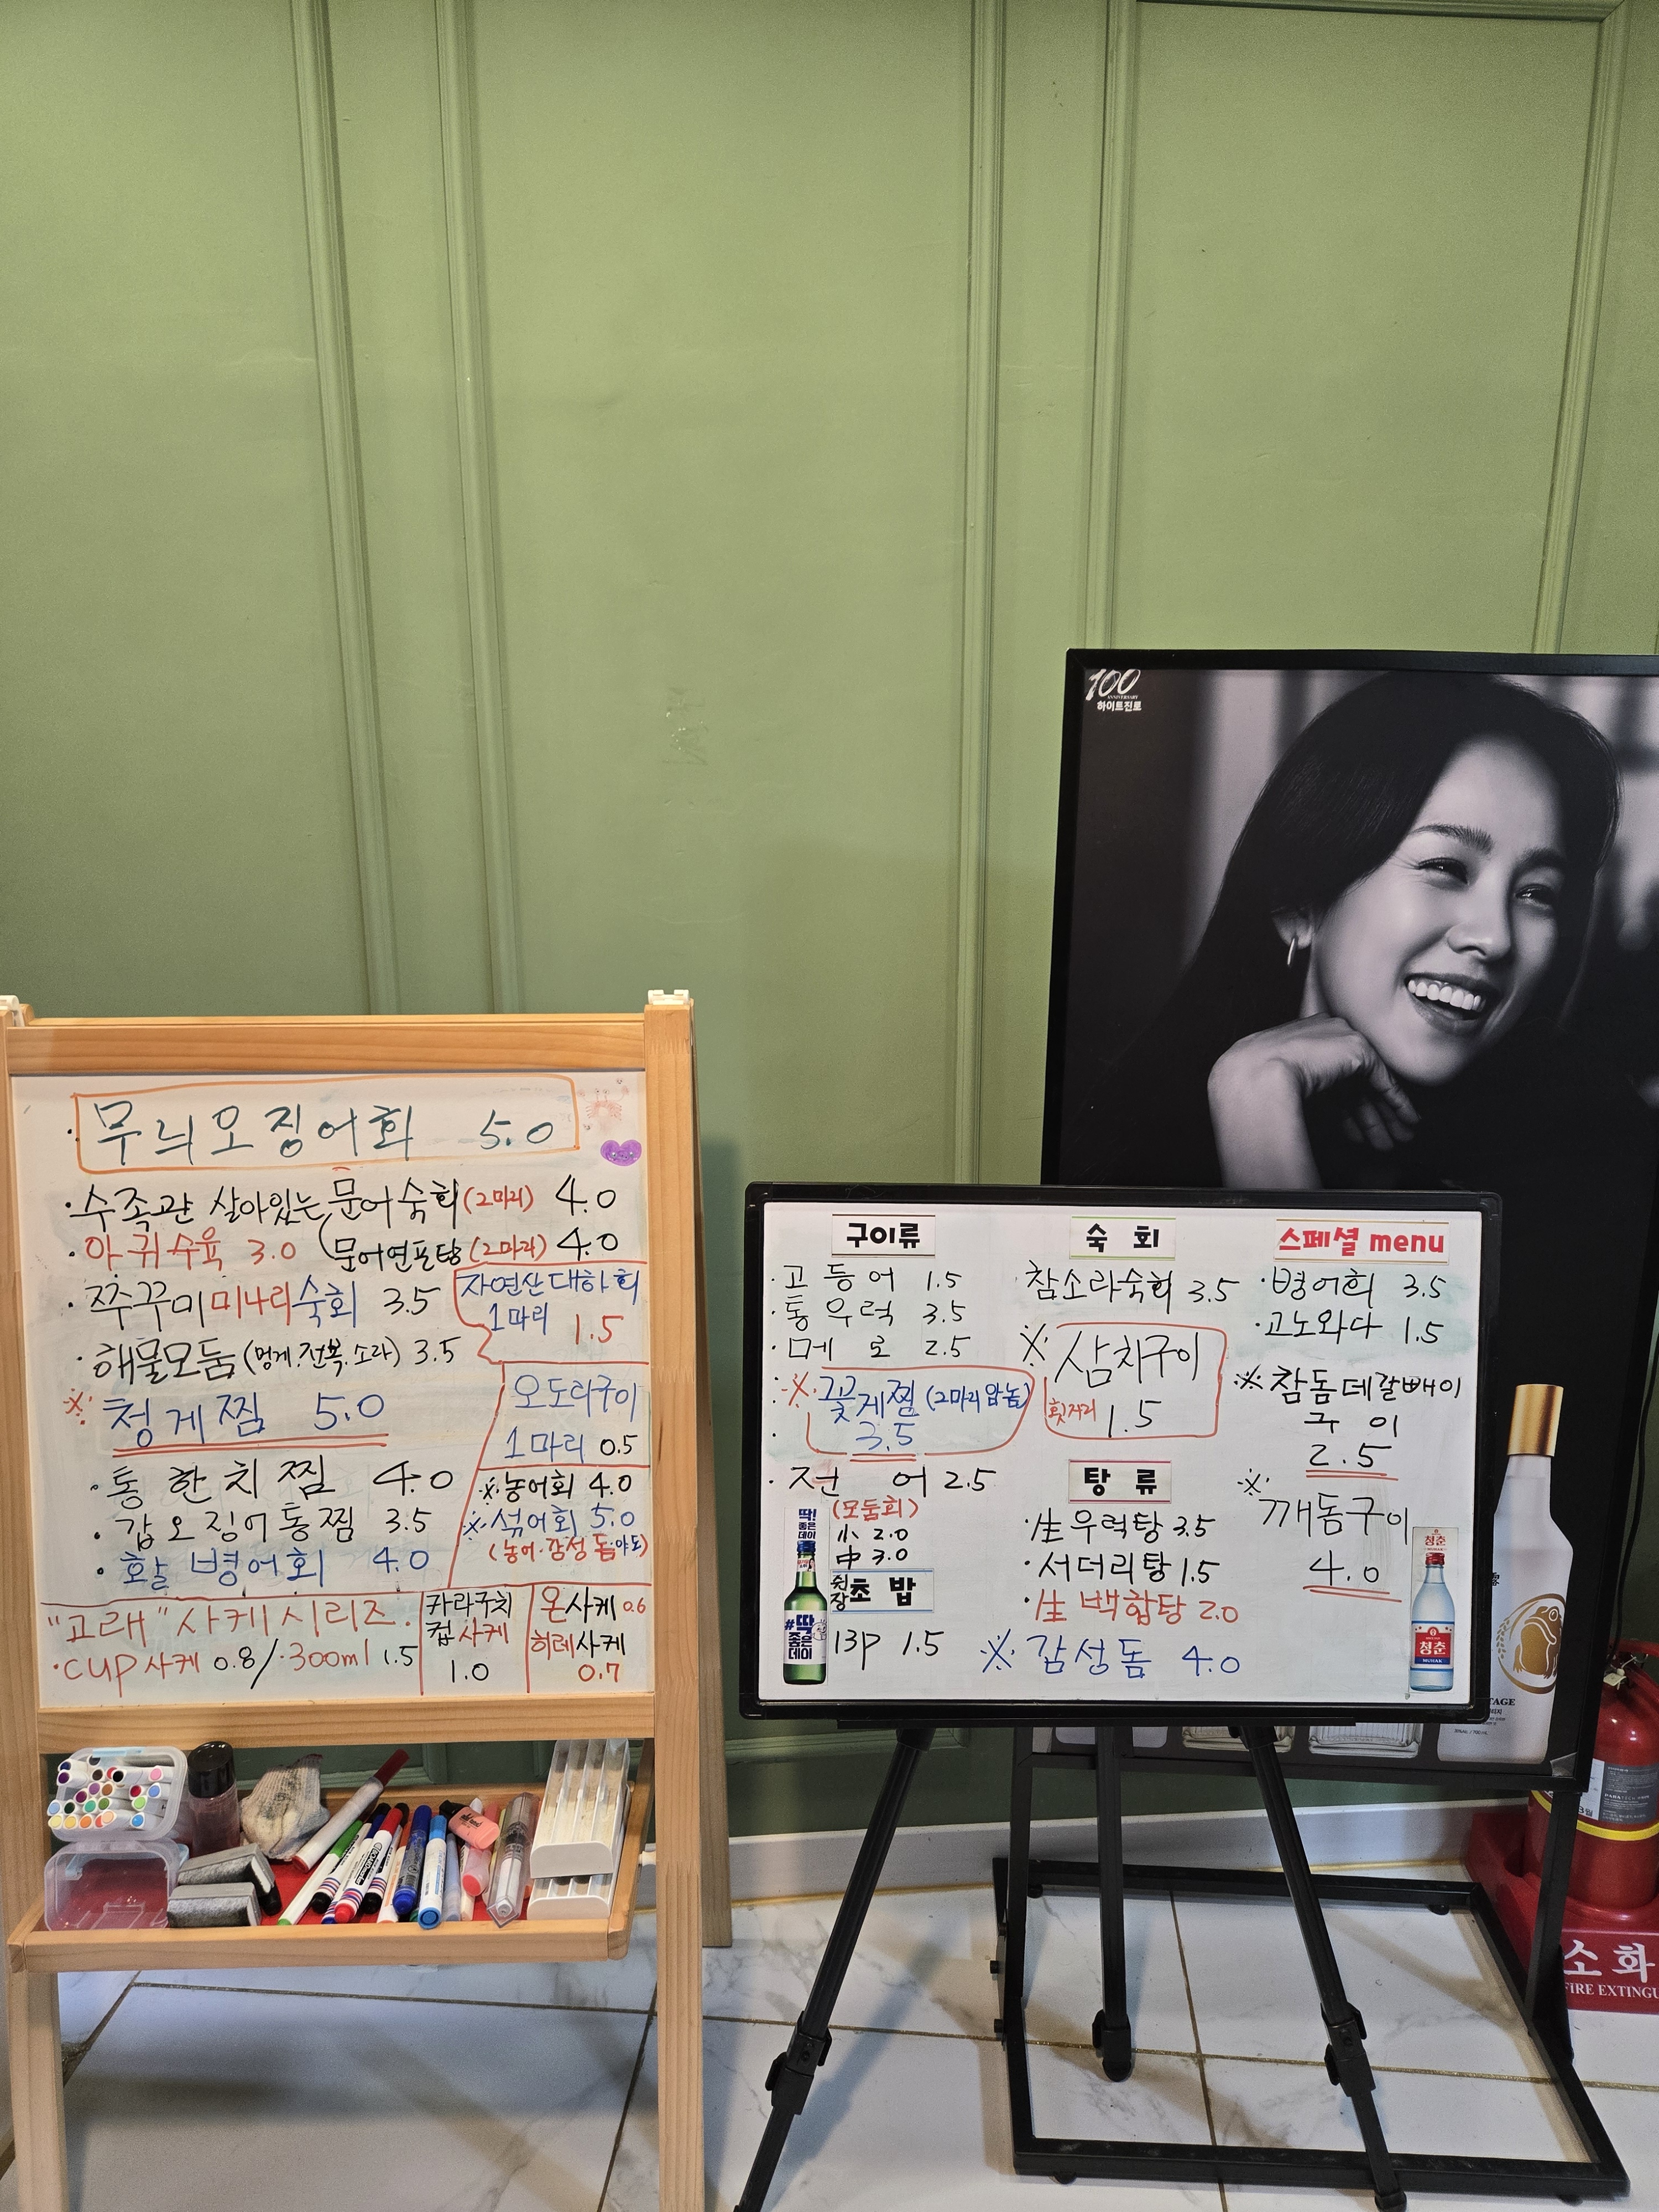 무늬오징어회 5.0
·수족관 살아있는 문어숙회(2마리) 4.0
·아귀수육 3.0 (문어연포탕(2마리) 4.0
·쭈꾸미미나리숙회 3.5
자연산대하회
1마리
1.5
·해물모둠(멍게.전복.소라) 3.5
※청게찜 5.0
오도리구이
1마리 0.5
·통한치찜 4.0
·갑오징어통찜 3.5
·활병어회 4.0
※농어회 4.0
※섞어회 5.0
(농어·감성돔·야도)
"고래"사케시리즈.
·cup사케 0.8/·300ml 1.5
카라구치
컵사케
1.0
온사케 0.6
히레사케
0.7
100
ANNIVERSARY
하이트진로
구이류
·고등어 1.5
·통우럭 3.5
·메로 2.5
※꽃게찜(2마리암놈)
3.5
·전어 2.5
(모둠회)
小 2.0
中 3.0
초밥
13p 1.5
딱!
좋은
데이
#딱
좋은
데이
숙회
참소라숙회 3.5
※삼치구이
1.5
탕류
·生우럭탕 3.5
·서더리탕 1.5
·生백합탕 2.0
※감성돔 4.0
스페셜 menu
·병어회 3.5
·고노와다 1.5
※참돔데갈빼이
구이
2.5
※깨돔구이
4.0
청춘
청춘
MUHAK
소화
FIRE EXTINGU